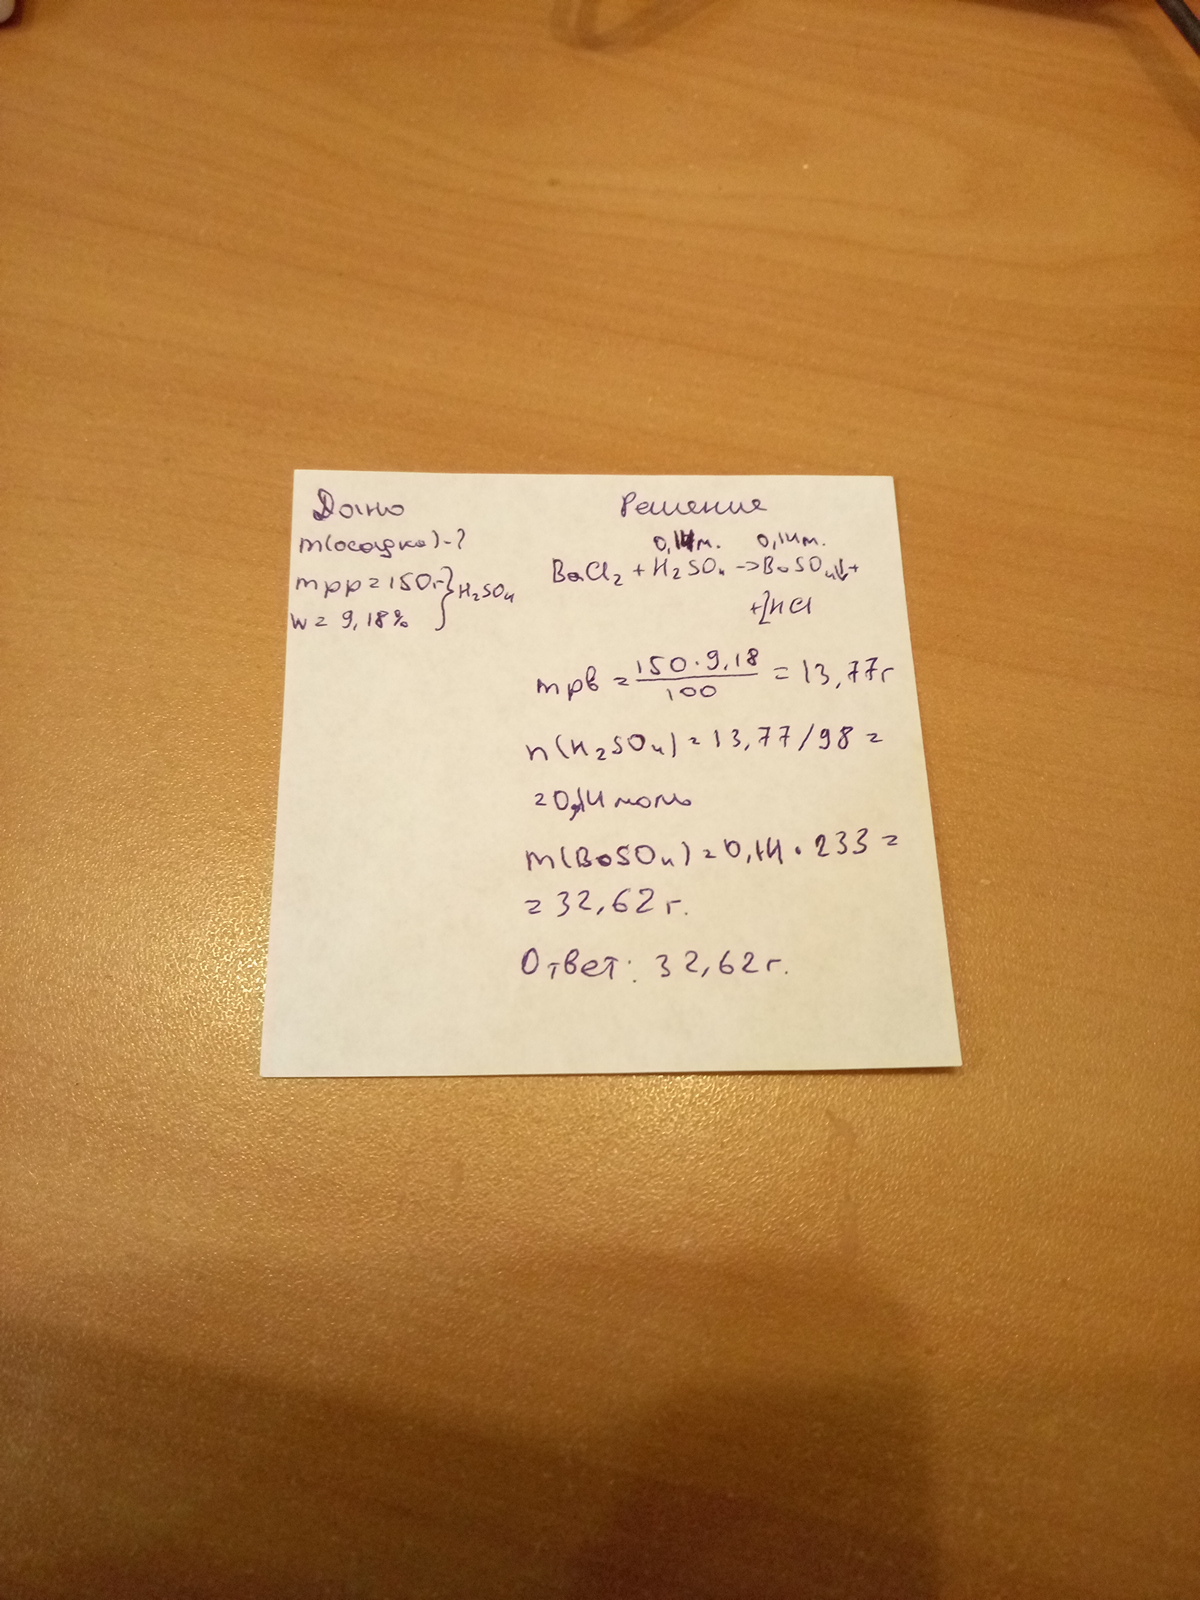 Дано
m(осадка)-?
mрр=150г } H₂SO₄
w = 9,18%
Решение
0,14м. 0,14м.
BaCl₂ + H₂SO₄ -> BaSO₄↓+
+2HCl
mрв = 150·9,18/100 = 13,77г
n(H₂SO₄) = 13,77/98 =
=0,14 моль
m(BaSO₄) = 0,14 · 233 =
= 32,62 г.
Ответ: 32,62 г.